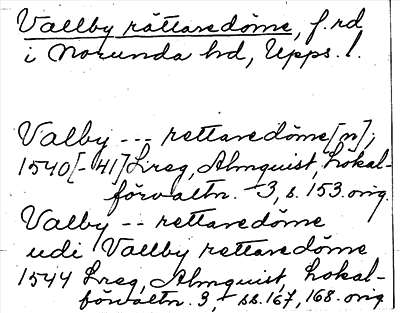 Vallby rättaredöme, f. rd
i Norunda hd, Upps. l.
Valby --- rettaredöme[n];
1540[-41] Lreg, Almquist, Lokal-
förvaltn. 3, s. 153. orig.
Valby -- rettaredöme
udi Vallby rettaredöme
1544 Lreg, Almquist, Lokal-
förvaltn. 3, ss. 167, 168. orig